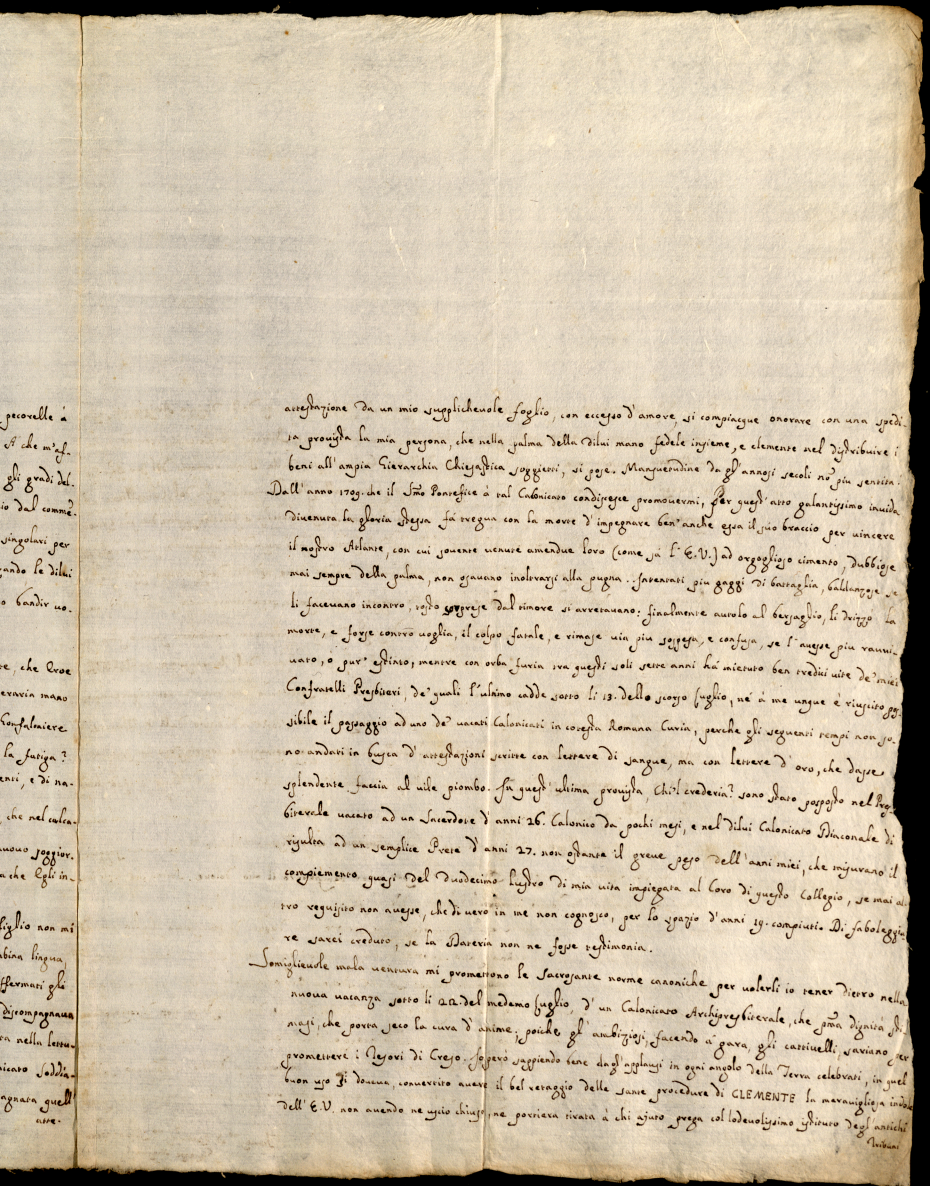 pecorelle à
A che m'af-
gli gradi del-
io dal comme-
singolari per
ando le dilui
o bandir uo-
te, che Eroe
eraria mano
Confaloniere
la fatiga?
enti, e di na-
, che nel calca-
nuouo soggior-
a che Egli in-
figlio non mi
bina lingua,
ffermati gli
discompagnaua
ta nella lettu-
nicato soddia-
agnata quell'
atte-
attestazione da un mio supplicheuole foglio, con eccesso d'amore, si compiacque onorare con una spedi-
ta prouista la mia persona, che nella palma della dilui mano fedele insieme, e clemente nel distribuire i
beni all'ampia Gierarchia Chiesastica soggietti, si pose. Mansuetudine da gl'annosi secoli nõ piu sentita!
Dall'anno 1709. che il Smo Pontefice à tal Calonicato condiscese promouermi, per quest'atto galantissimo inuida
diuenuta la gloria stessa fà tregua con la morte d'impegnare ben'anche essa il suo braccio per vincere
il nostro Atlante, con cui souente uenute amendue loro (come sà l'E.V.) ad orgoglioso cimento, dubbiose
mai sempre della palma, non osauano inoltrarsi alla pugna. Intentati piu gaggi di battaglia, baldanzose se
li faceuano incontro, tosto sorprese dal timore si arretauano: finalmente autolo al bersaglio, li drizzò la
morte, e forse contro uoglia, il colpo fatale, e rimase uia piu sospesa, e confusa, se l'auesse piu rauui-
uato, o pur'estinto, mentre con orba furia tra questi soli sette anni há mietuto ben tredici uite de' miei
Confratelli Presbiteri, de' quali l'ultimo cadde sotto li 13. dello scorso Luglio, né à me unque è riuscito pos-
sibile il passaggio ad uno de' uacati Calonicati in cotesta Romana Curia, perche gli seguenti tempi non so-
no andati in busca d'attestazioni scritte con lettere di sangue, ma con lettere d'oro, che dasse
splendente faccia al uile piombo. In quest'ultima prouista, Chi'l crederia? sono stato posposto nel Pres-
biterale uacato ad un Sacerdote d'anni 26. Calonico da pochi mesi, e nel dilui Calonicato Diaconale di
risulta ad un semplice Prete d'anni 27. non ostante il greue peso dell'anni miei, che misurano il
compiemento quasi del duodecimo lustro di mia uita impiegata al Coro di questo Collegio, se mai al-
tro requisito non auesse, che di uero in me non cognosco, per lo spazio d'anni 19. compiuti. Di faboleggia-
re sarei creduto, se la Dateria non ne fosse testimonia.
Somiglieuole mala uentura mi promettono le Sacrosante norme canoniche per uolerli io tener dietro nella
nuoua uacanza sotto li 22. del medemo Luglio, d'un Calonicato Archipresbiterale, che pma dignità sti-
masi, che porta seco la cura d'anime; poiche gl'ambiziosi, facendo à gara, gli cattiuelli, sariano per
promettere i Tesori di Creso. Io però sappiendo bene dagl'applausi in ogni angolo della Terra celebrati, in quel
buon uso di doueua, conuertito auere il bel retaggio delle sante procedure di CLEMENTE la marauigliosa indole
dell'E.V. non auendo ne uscio chiuso, ne portiera tirata à chi ajuto prega col lodeuolissimo istituto degl'antichi
Tribuni